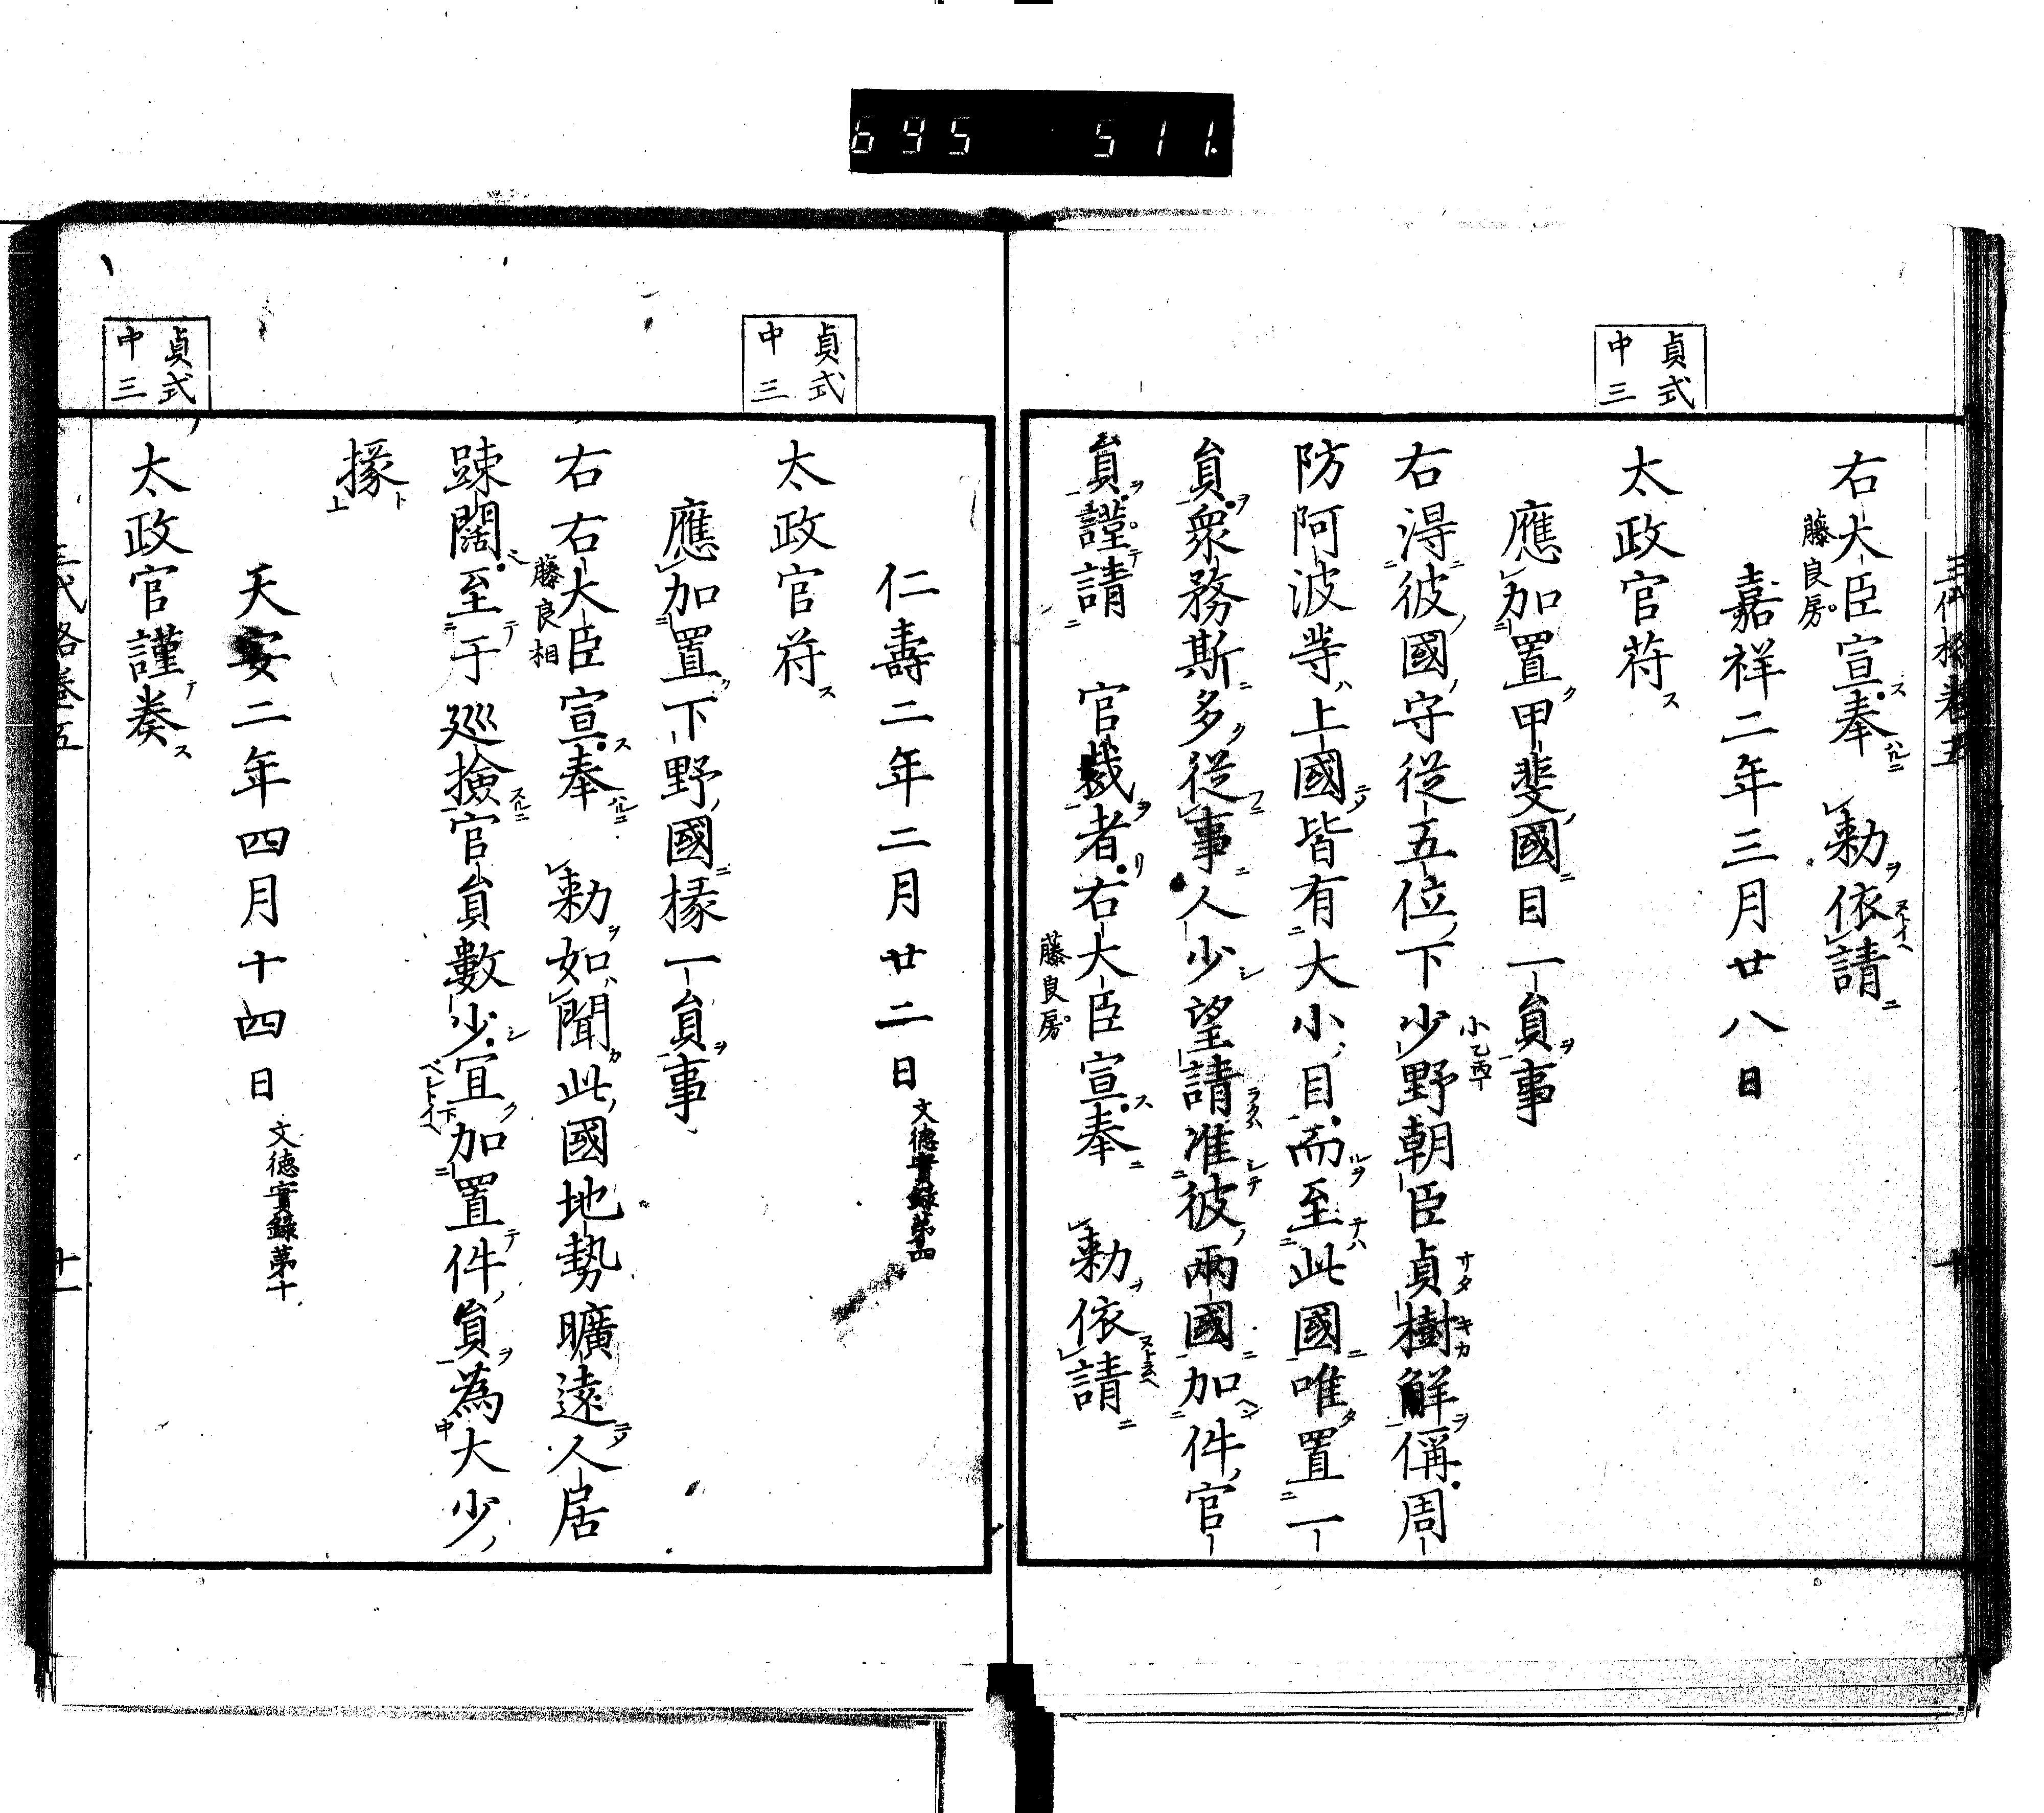 695 511.
三代格卷五
十
右大臣宣奉 勅依請
藤良房
嘉祥二年三月廿八日
貞式
中三
太政官苻
應加置甲斐國目一員事
右得彼國守從五位下少野朝臣貞樹解偁周
小乙丙
サタ キカ
防阿波等上國皆有大小目而至此國唯置一
員衆務斯多從事人少望請准彼兩國加件官
員謹請 官裁者右大臣宣奉 勅依請
藤良房
仁壽二年二月廿二日
文德實錄第四
貞式
中三
太政官苻
應加置下野國掾一員事
右右大臣宣奉 勅如聞此國地勢曠遠人居
藤良相
踈闊至于巡撿官員數少宜加置件員為大少
掾
天安二年四月十四日
文徳實錄第十
貞式
中三
太政官謹奏
三代格卷五
十一